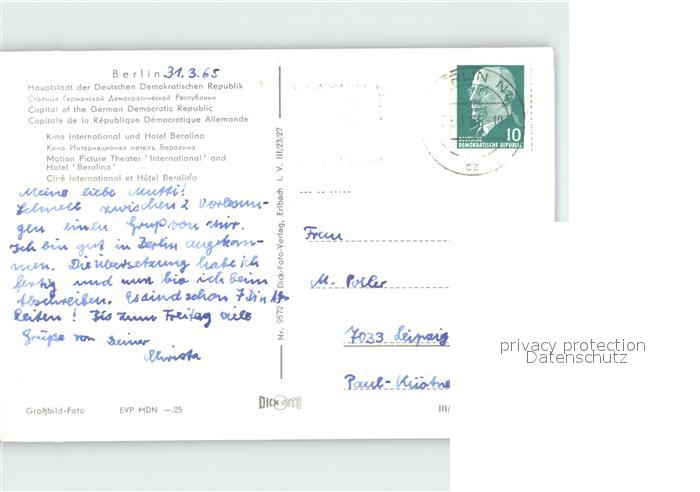 Berlin 31.3.65
Hauptstadt der Deutschen Demokratischen Republik
Столица Германской Демократической Республики
Capital of the German Democratic Republic
Capitale de la République Démocratique Allemande
Kino International und Hotel Berolina
Кино Интернационал и отель Беролина
Motion Picture Theater 'International' and
Hotel 'Berolina'
Ciné International et Hôtel Berolina
Meine liebe Mutti!
Schnell zwischen 2 Vorlesun-
gen einen Gruß von mir.
Ich bin gut in Berlin angekom-
men. Die Übersetzung habe ich
fertig und nun bin ich beim
Abschreiben. Es sind schon 7 Din A4-
Seiten! Bis zum Freitag viele
Grüße von Deiner
Christa
Großbild-Foto EVP MDN —.25
Nr. 9572 Dick-Foto-Verlag, Erlbach i. V. III/23/27
DICK FOTO
BERLIN
10
DEUTSCHE DEMOKRATISCHE REPUBLIK
cz
Frau
M.
7033 Leipzig
Paul-Küstne
III/
privacy protection
Datenschutz